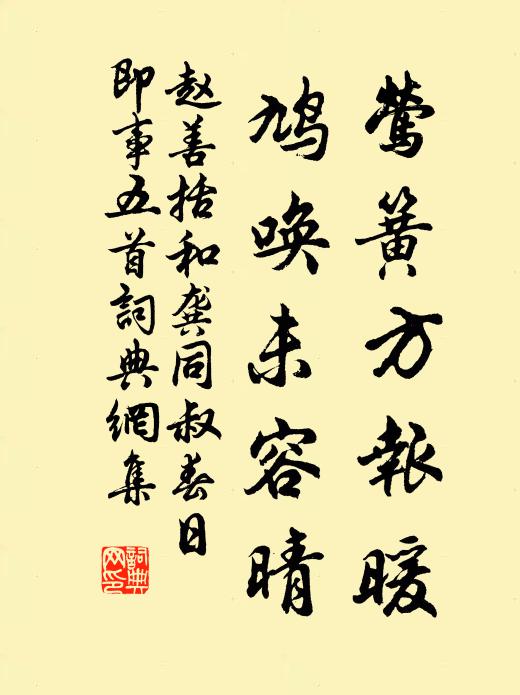 鶯簧方報暖
鳩喚未容晴
赵善括和龔同叔春日
即事五首詞典網集
詞典網印